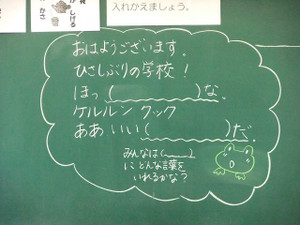 入れかえましょう。
しげる
かさ
おはようございます。
ひさしぶりの学校！
ほっ（　　　　　　）な。
ケルルン クック
ああ いい（　　　　　　）だ。
みんなは（　　）
に、どんな言葉を
いれるかな？